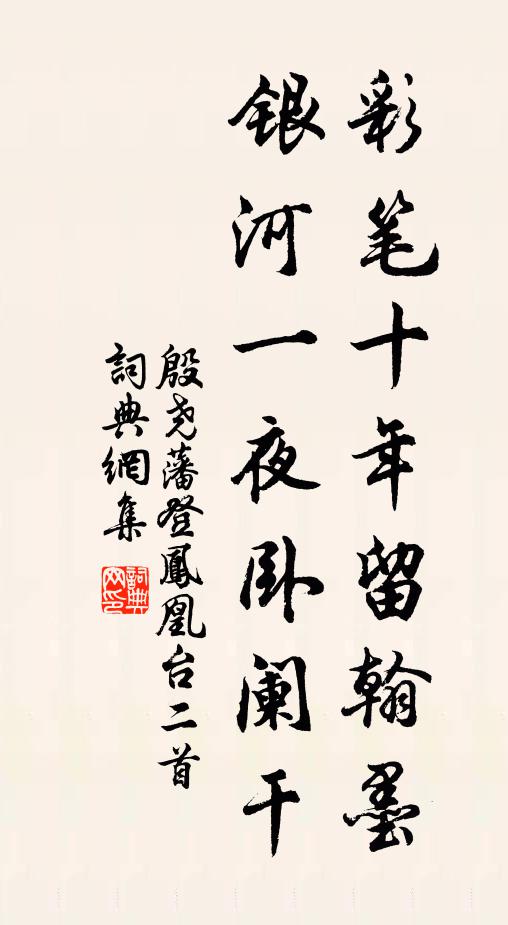 彩笔十年留翰墨
银河一夜卧阑干
殷尧藩登鳳凰台二首
詞典網集
詞典網印